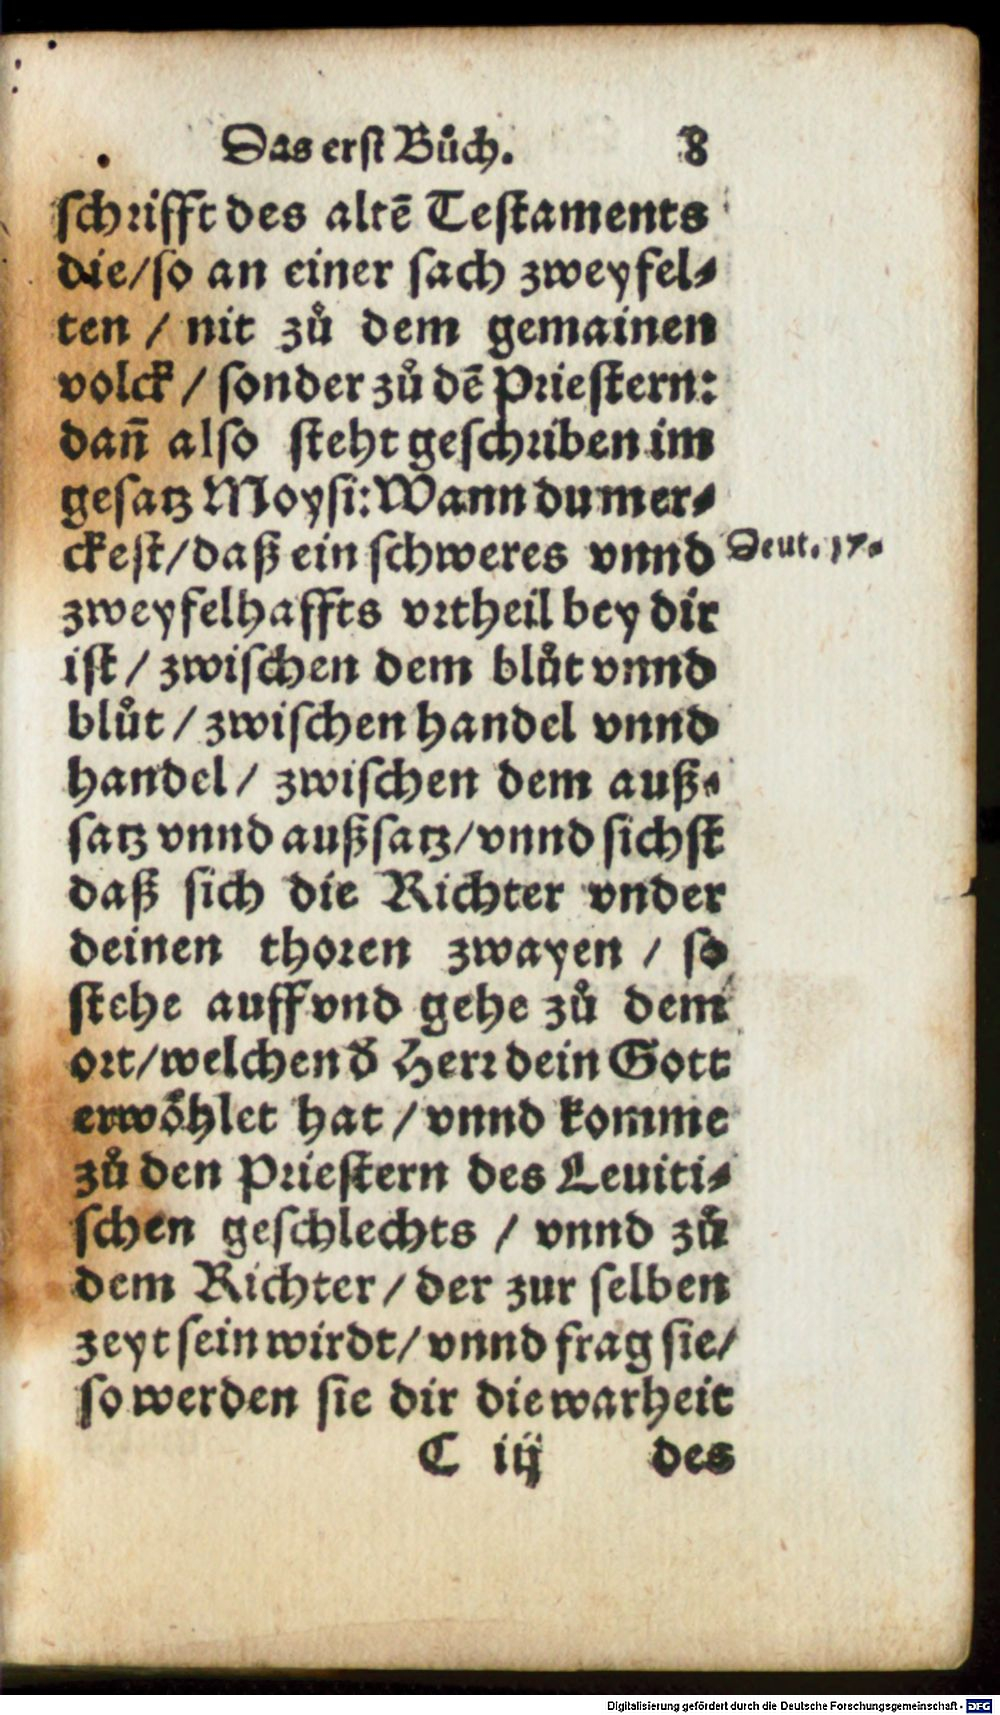 Das erst Bůch. 8
schrifft des altē Testaments
die/so an einer sach zweyfel-
ten / nit zů dem gemainen
volck / sonder zů dē Priestern:
dañ also steht geschriben im
gesatz Moysi: Wann du mer-
ckest/daß ein schweres vnnd
Deut. 17.
zweyfelhaffts vrtheil bey dir
ist / zwischen dem blůt vnnd
blůt / zwischen handel vnnd
handel / zwischen dem auß-
satz vnnd außsatz/vnnd sichst
daß sich die Richter vnder
deinen thoren zwayen / so
stehe auff vnd gehe zů dem
ort/welchen d̄ Herr dein Gott
erwöhlet hat / vnnd komme
zů den Priestern des Leuiti-
schen geschlechts / vnnd zů
dem Richter / der zur selben
zeyt sein wirdt/ vnnd frag sie/
so werden sie dir die warheit
C iij des
Digitalisierung gefördert durch die Deutsche Forschungsgemeinschaft - DFG